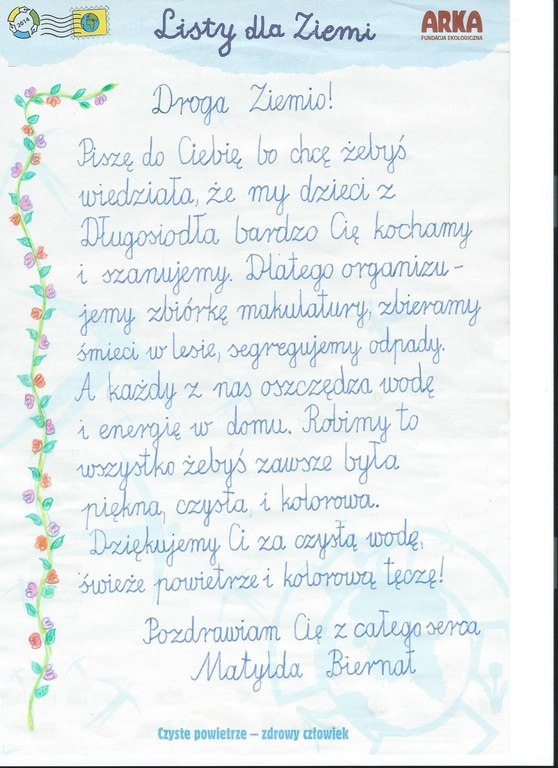 2014
Listy dla Ziemi
ARKA
FUNDACJA EKOLOGICZNA
Droga Ziemio!
Piszę do Ciebię bo chcę żebyś
wiedziała, że my dzieci z
Długosiodła bardzo Cię kochamy
i szanujemy. Dlatego organizu-
jemy zbiórkę makulatury, zbieramy
śmieci w lesie, segregujemy odpady.
A każdy z nas oszczędza wodę
i energię w domu. Robimy to
wszystko żebyś zawsze była
piękna, czysta, i kolorowa.
Dziękujemy Ci za czystą wodę,
świeże powietrze i kolorową tęczę!
Pozdrawiam Cię z całego serca
Matylda Biernat
Czyste powietrze – zdrowy człowiek